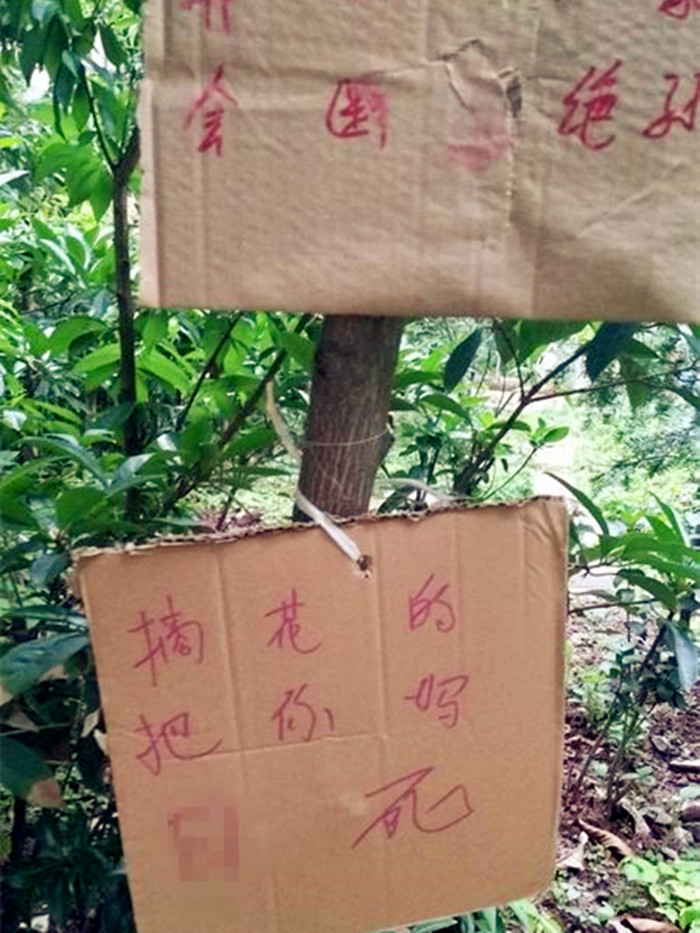 会断 绝孙
摘花的
把你妈
死